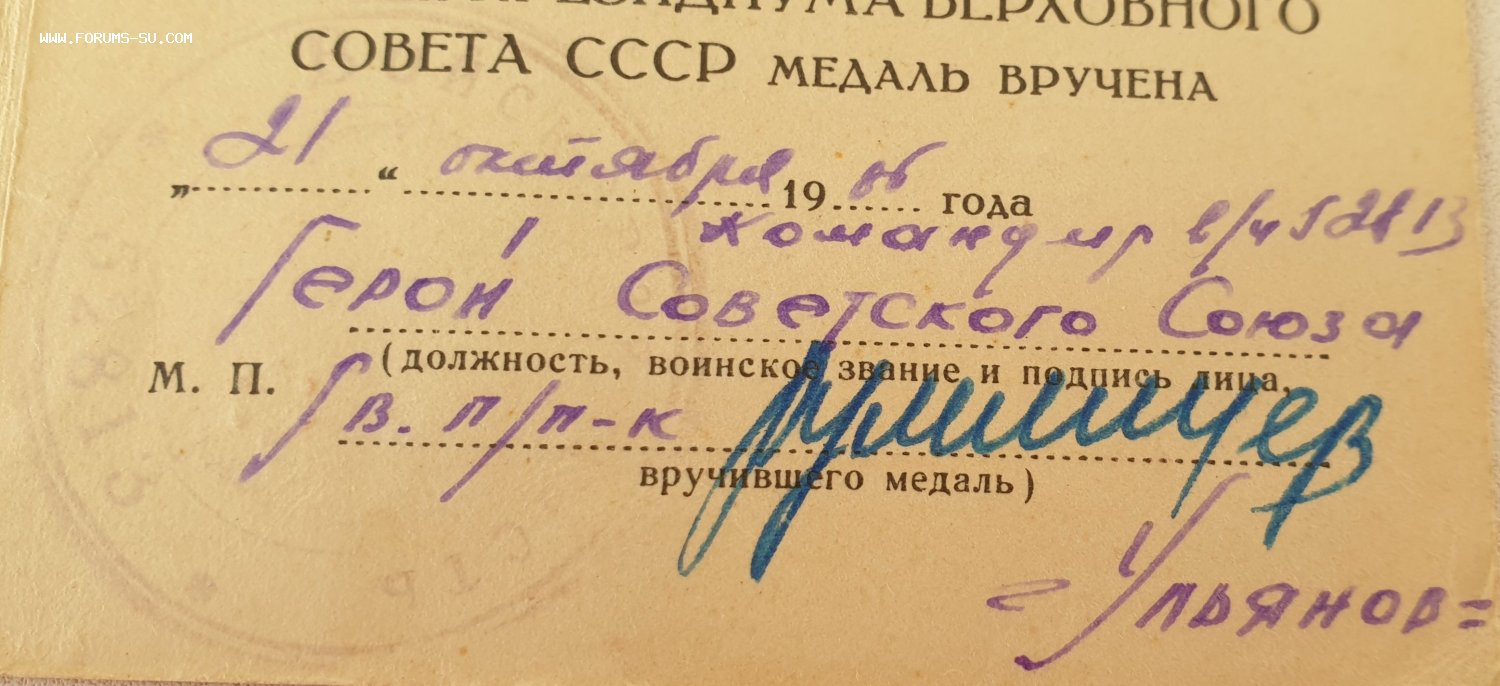 WWW.FORUMS-SU.COM
ПРЕЗИДИУМА ВЕРХОВНОГО
СОВЕТА СССР МЕДАЛЬ ВРУЧЕНА
„21“ октября 1946 года
Командир в/ч 52813
Герой Советского Союза
(должность, воинское звание и подпись лица,
М. П.
Гв. п/п-к
вручившего медаль)
=Ульянов=